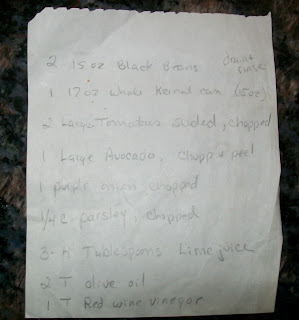 2 15oz Black Beans drain & rinse
1 17oz Whole Kernel corn (15oz)
2 Large Tomatoes seeded, chopped
1 Large Avocado, chopp & peel
1 purple onion chopped
1/4 c parsley, chopped
3-4 Tablespoons Lime juice
2 T olive oil
1 T Red wine vinegar